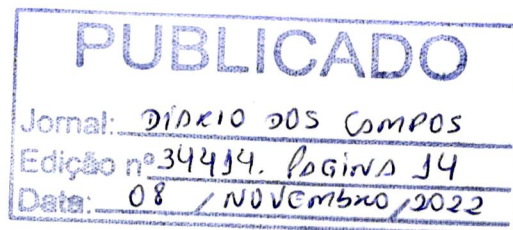 PUBLICADO
Jornal: DIÁRIO DOS CAMPOS
Edição nº 34414. PAGINA 14
Data: 08 / NOVEMBRO / 2022